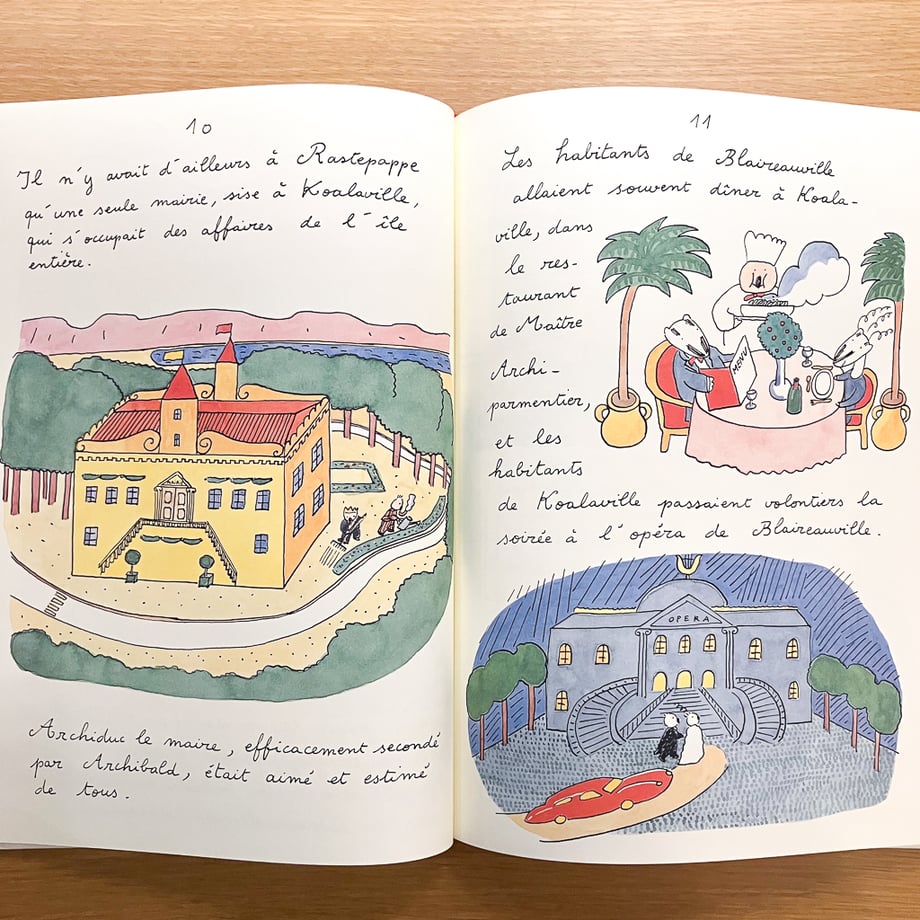 10
Il n'y avait d'ailleurs à Rastepappe
qu'une seule mairie, sise à Koalaville,
qui s'occupait des affaires de l'île
entière.
Archiduc le maire, efficacement secondé
par Archibald, était aimé et estimé
de tous.
11
Les habitants de Blaireauville
allaient souvent dîner à Koala-
ville, dans
le res-
taurant
de Maître
Archi-
parmentier,
et les
habitants
de Koalaville passaient volontiers la
soirée à l'opéra de Blaireauville.
MENU
OPERA